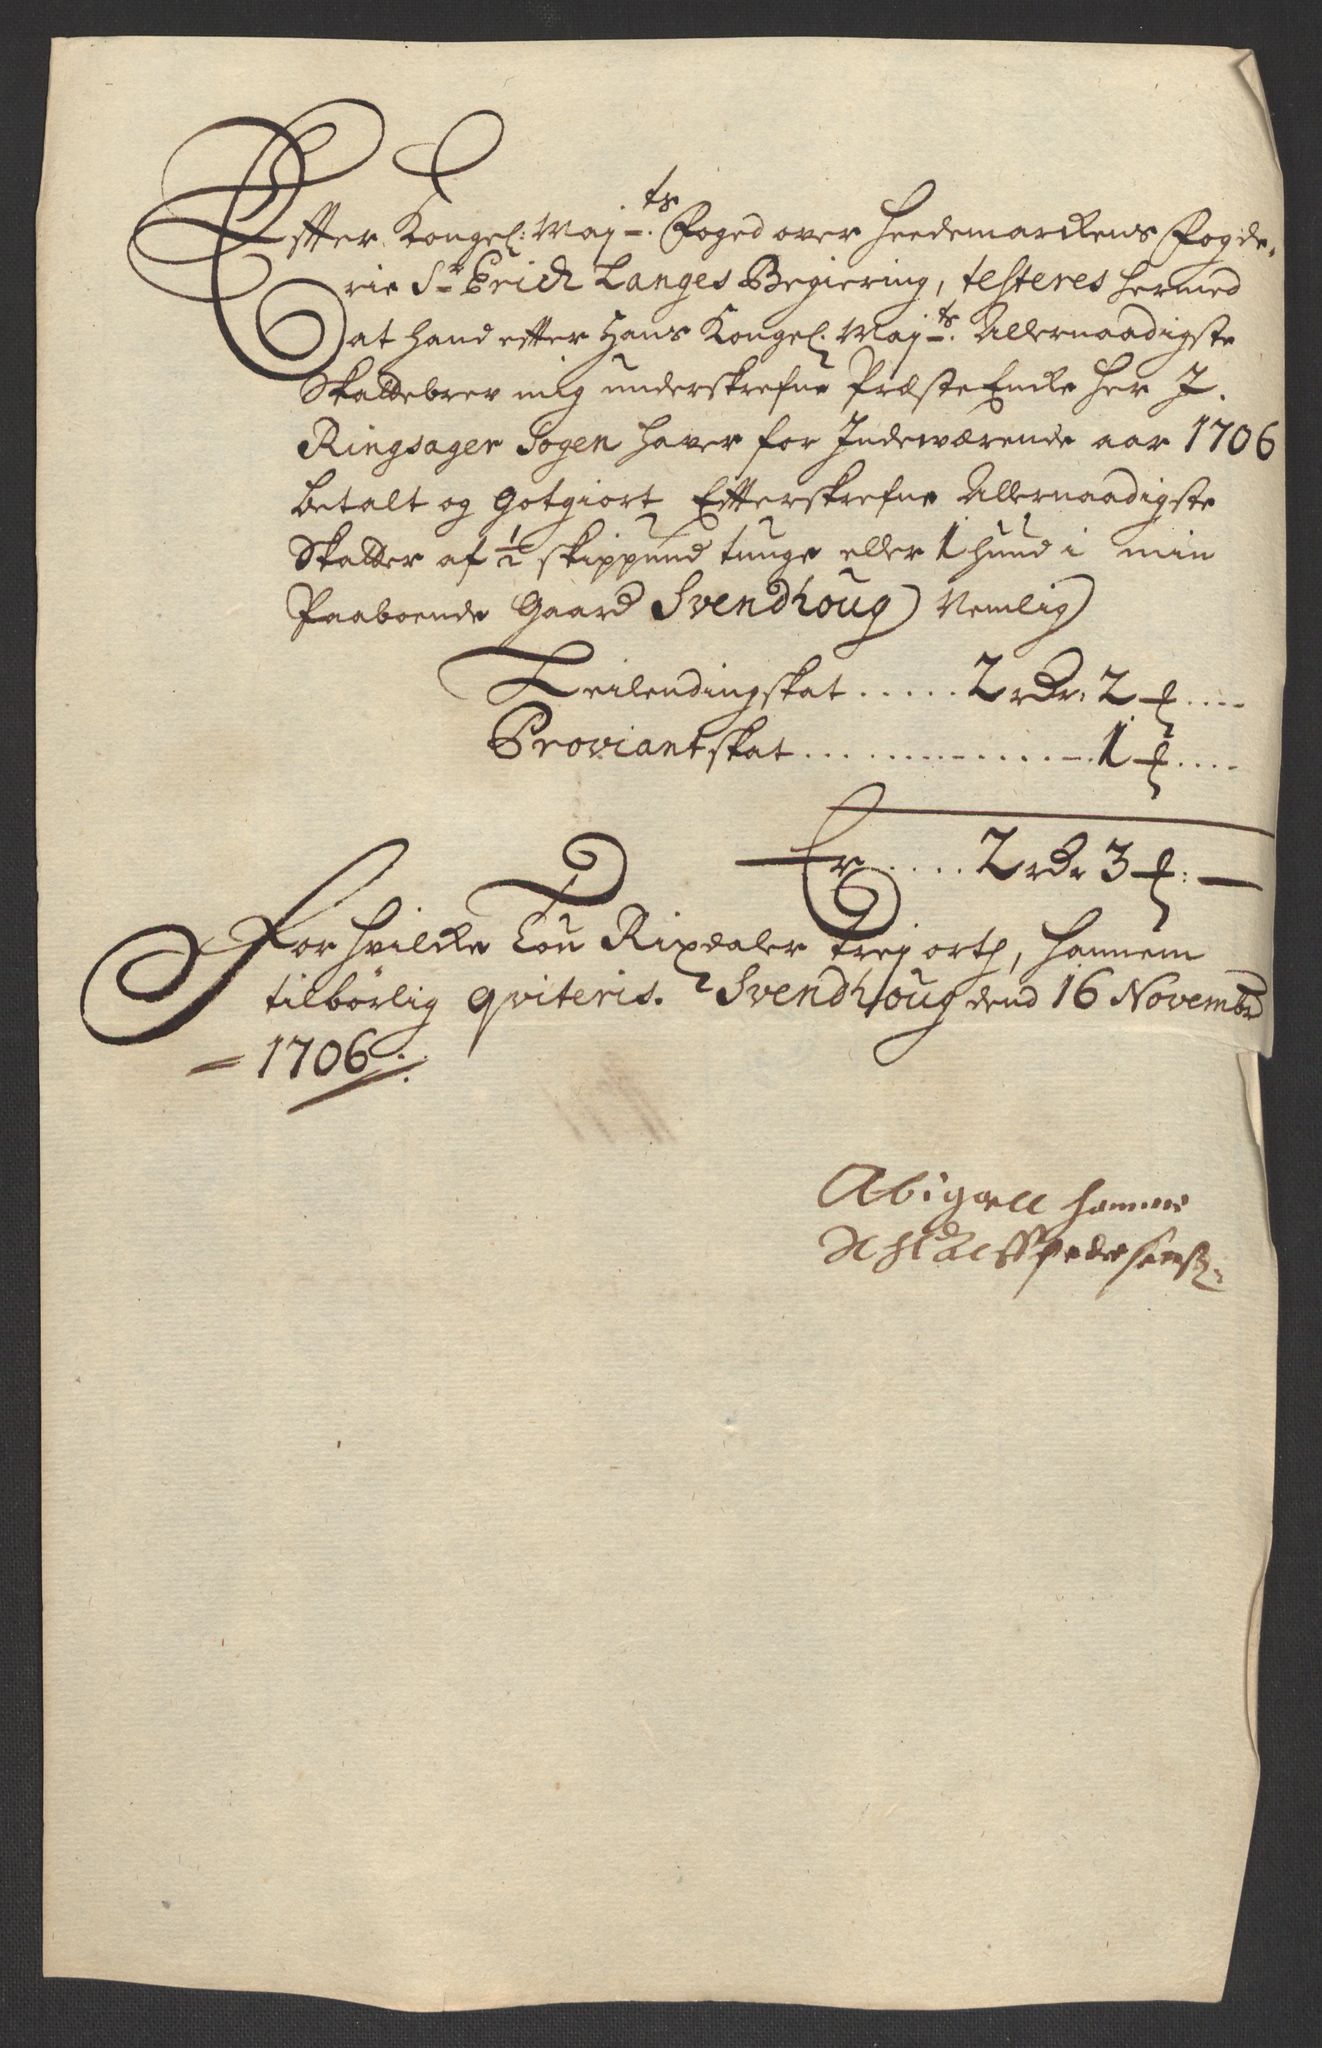 Effter Kongel: Maj:ts Foged over Heedemarckens Fogde-
rie Sr Erich Langes Begiering, testeres hermed
at hand effter Hans Kongel. Maj:ts Allernaadigste
Skattebrev mig underskrefne Præste Encke her J.
Ringsager Sogen haver for Indeværende aar 1706
betalt og Gotgiort Effterskrefne Allernaadigste
Skatter af ½ skippund tunge eller 1 hund i min
Paaboende Gaard Svendhoug) Nemlig)
Leilendingskat ..... 2 rdr: 2 ₰ ....
Proviantskat ............... 1 ₰ ....
Er ..... 2 rdr 3 ₰: —
For hvilcke Tou Rixdaler trej orth, hannem
tilbörlig qviteris. Svendhoug dend 16 Novembr
1706
Abigaell Hamme